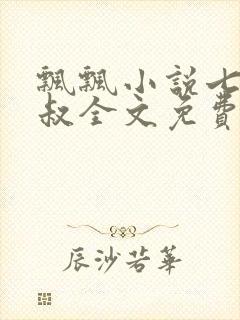 飄飄小說七
叔全文免費
辰沙若華